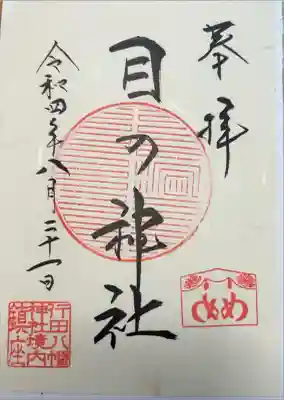 奉拝
目の神社
令和四年八月二十一日
行田八幡
神社境内
鎮座
め